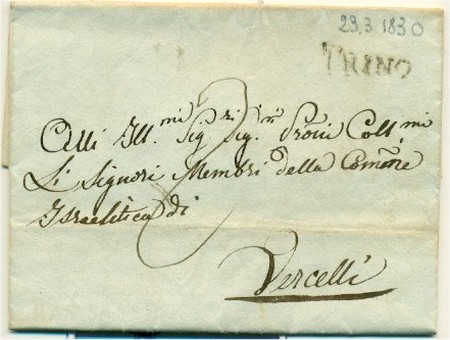 29.3 1830
TRINO
2
Alli Ill.mi Sig.ri Sig.ri Proni Coll.mi
Li Signori Membri della Comne
Israelitica di
Vercelli